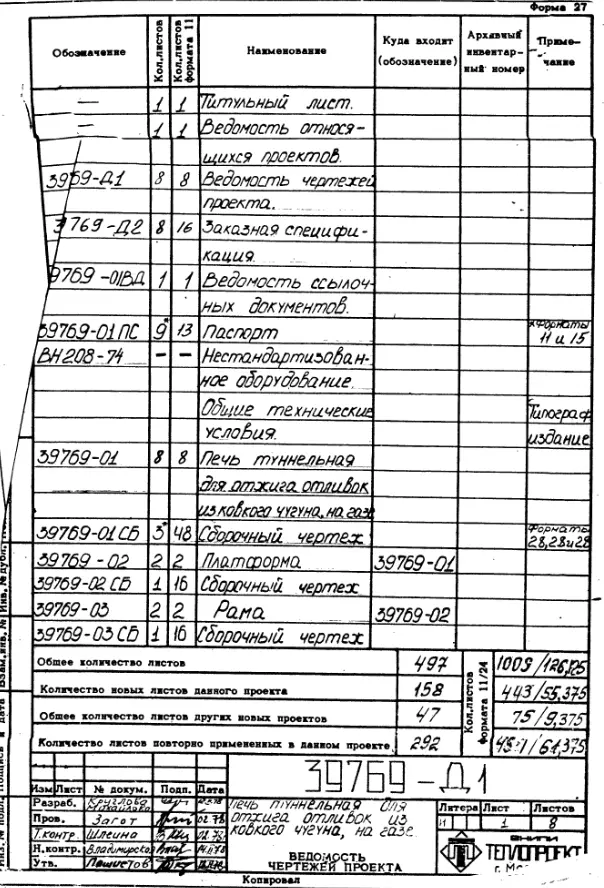 Форма 27
Обозначение Кол.листов Кол.листов формата 11 Наименование Куда входит (обозначение) Архивный инвентар-ный номер Приме-чание
— 1 1 Титульный лист.
— 1 1 Ведомость относя-
щихся проектов.
39-Д1 8 8 Ведомость чертежей
проекта.
3769-Д2 8 16 Заказная специфи-
кация.
39769-01ВД 1 1 Ведомость ссылоч-
ных документов.
39769-01 ПС 9* 13 Паспорт *Форматы
ВН208-74 — — Нестандартизован- 11 и 15
ное оборудование.
Общие технические Типограф
условия. издание
39769-01 8 8 Печь туннельная
для отжига отливок
из ковкого чугуна, на газе
39769-01 СБ 3* 48 Сборочный чертеж Форматы 28,28и28
39769-02 2 2 Платформа 39769-01
39769-02 СБ 1 16 Сборочный чертеж
39769-03 2 2 Рама 39769-02
39769-03 СБ 1 16 Сборочный чертеж
Общее количество листов 497 Кол.листов формата 11/24 1009/126,125
Количество новых листов данного проекта 158 443/55,375
Общее количество листов других новых проектов 47 75/9,375
Количество листов повторно примененных в данном проекте 292 /61,375
39769-Д1
Изм Лист № докум. Подп. Дата
Разраб. Круглова Михайлова
Пров. Загот 02.78
Т.контр. Шлеина
Н.контр. Владимирская
Утв.
Печь туннельная для
отжига отливок из
ковкого чугуна, на газе.
ВЕДОМОСТЬ
ЧЕРТЕЖЕЙ ПРОЕКТА
Литера Лист Листов
И 1 8
ВНИПИ
ТЕПЛОПРОЕКТ
г. М
Копировал